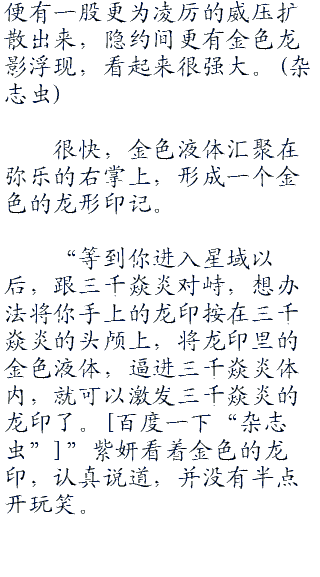 便有一股更为凌厉的威压扩
散出来，隐约间更有金色龙
影浮现，看起来很强大。(杂
志虫)
很快，金色液体汇聚在
弥乐的右掌上，形成一个金
色的龙形印记。
“等到你进入星域以
后，跟三千焱炎对峙，想办
法将你手上的龙印按在三千
焱炎的头颅上，将龙印里的
金色液体，逼进三千焱炎体
内，就可以激发三千焱炎的
龙印了。[百度一下“杂志
虫”]”紫妍看着金色的龙
印，认真说道，并没有半点
开玩笑。